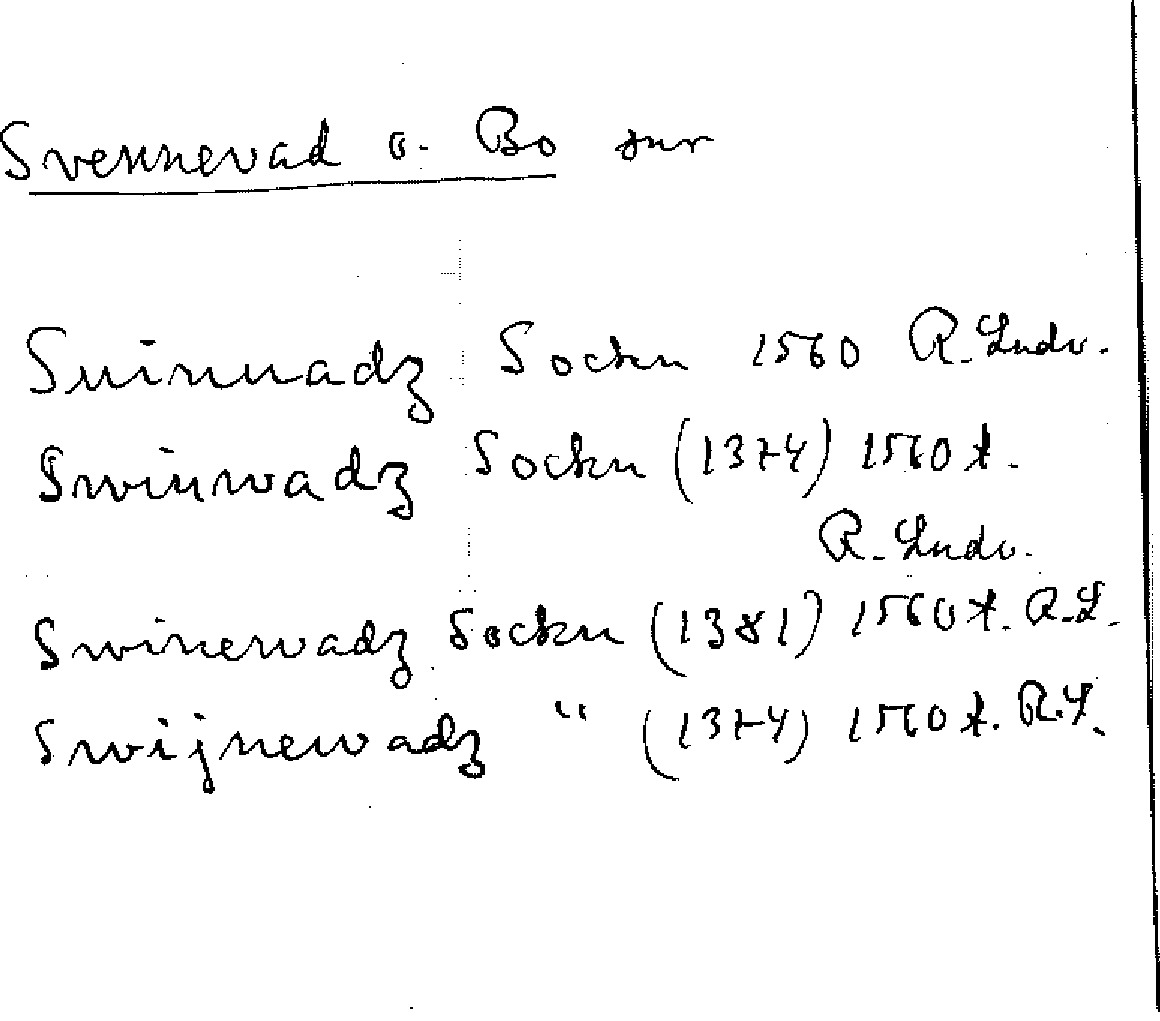 Svennevad o. Bo snr
Suinuadz Sockn 1560 R. Ludv.
Swinwadz Sockn (1374) 1560 t.
R. Ludv.
Swinewadz Sockn (1381) 1560 t. R.L.
Swijnewadz " (1374) 1560 t. R.L.